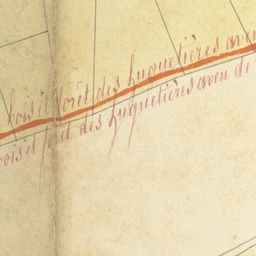 bois et forêt des huguetières aven
bois et forêt des huguetières aven de